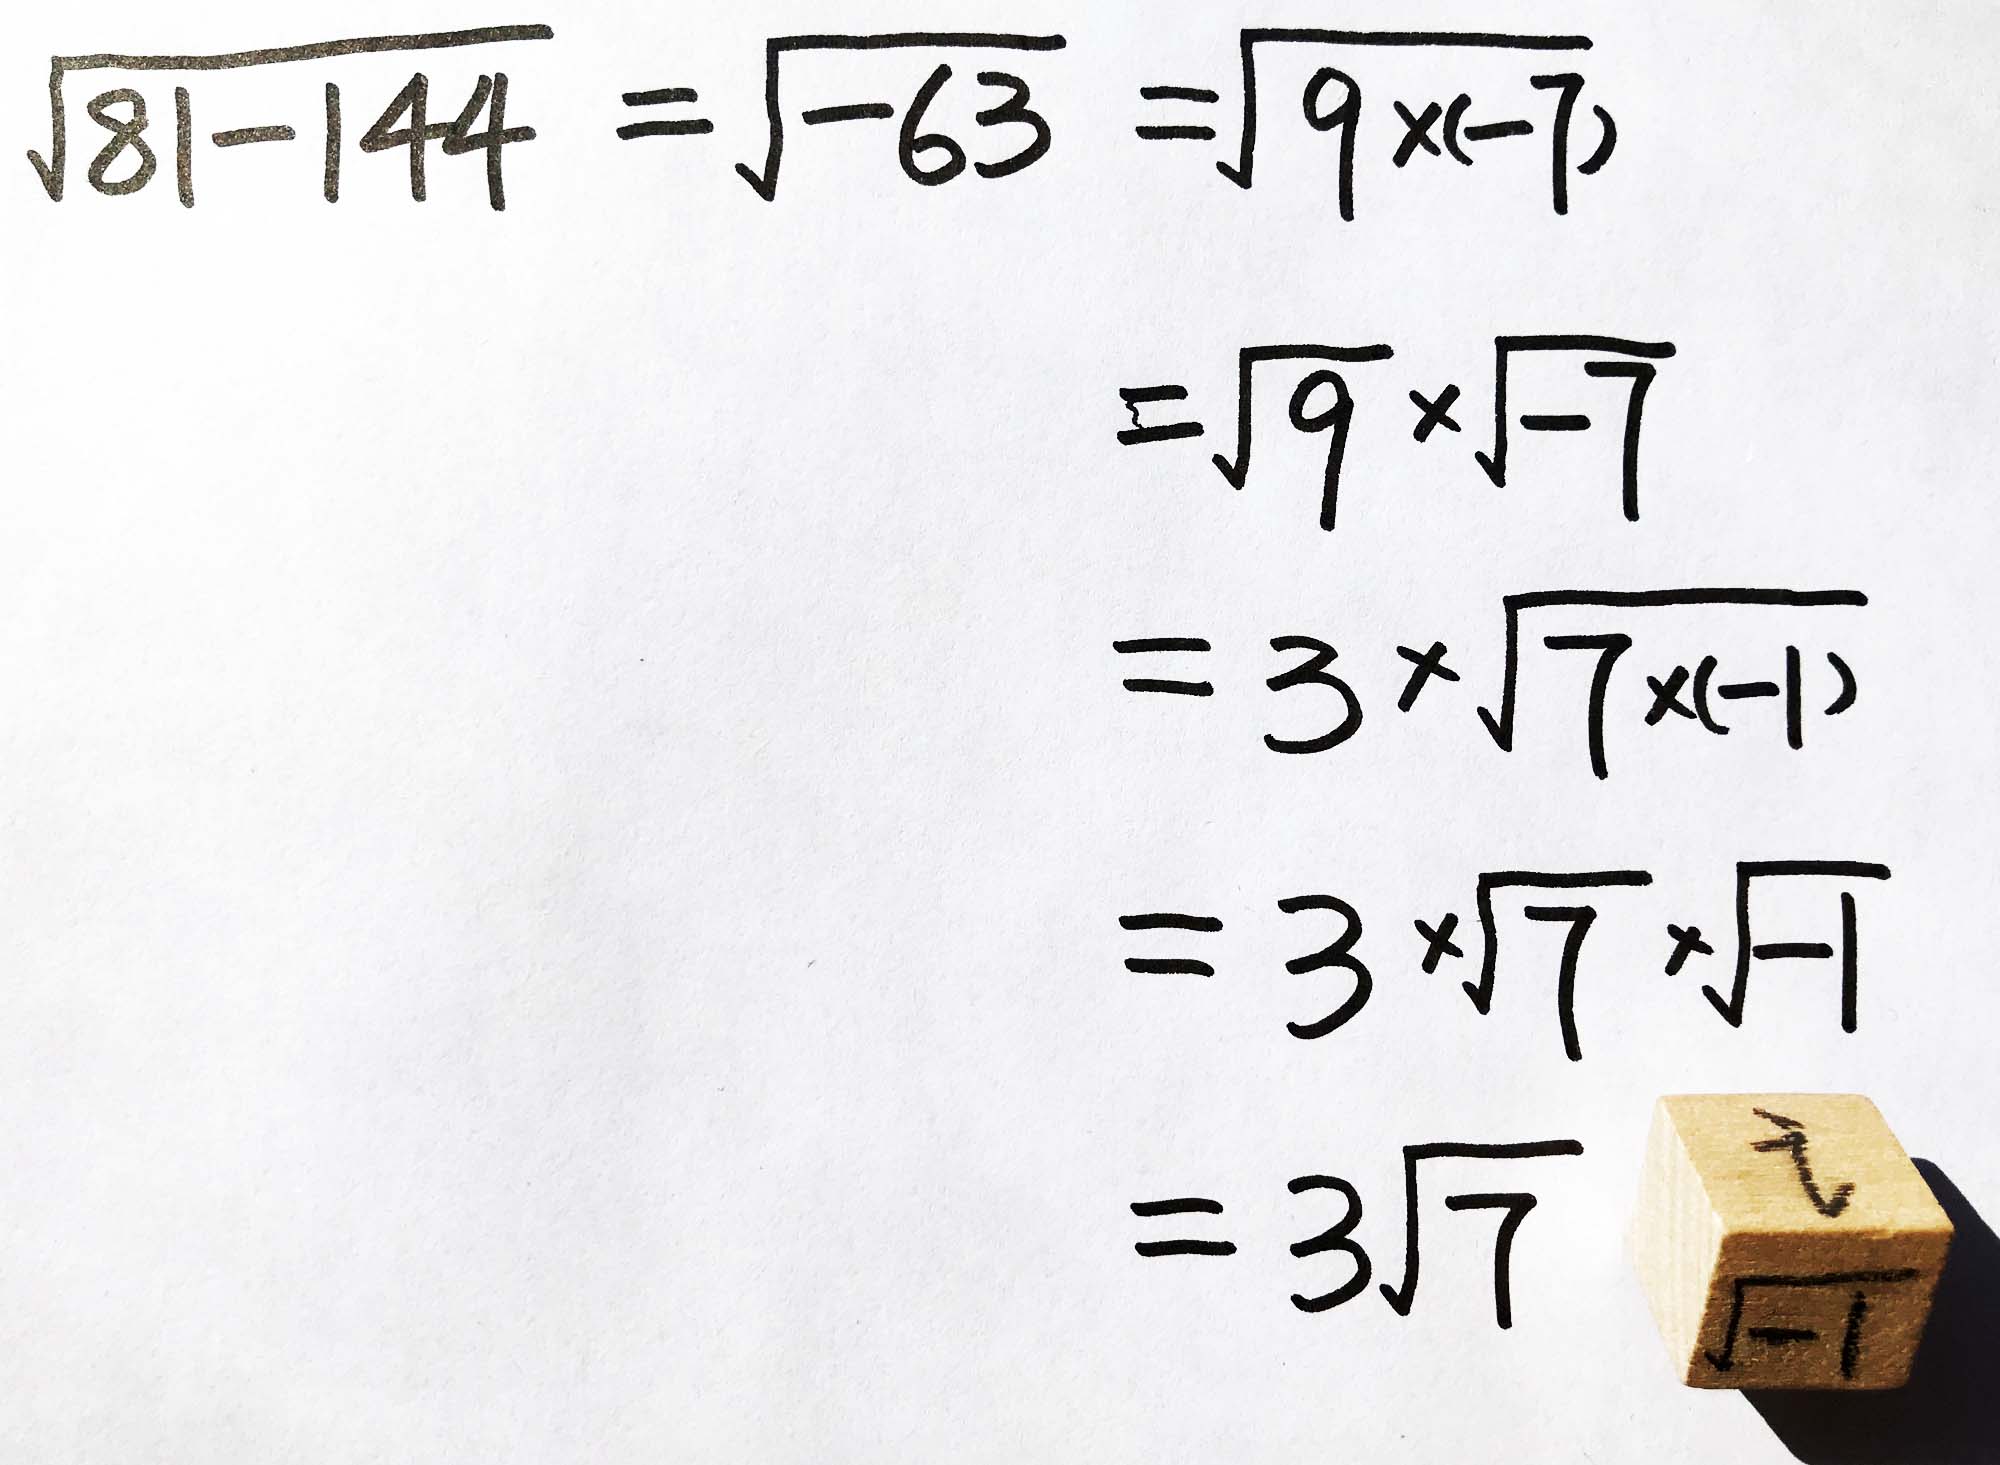 √81-144 = √-63 = √9×(-7)
= √9 × √-7
= 3 × √7×(-1)
= 3 × √7 × √-1
= 3√7 i
√-1